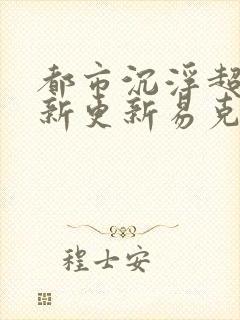 都市沉浮超
新更新易克
程士安